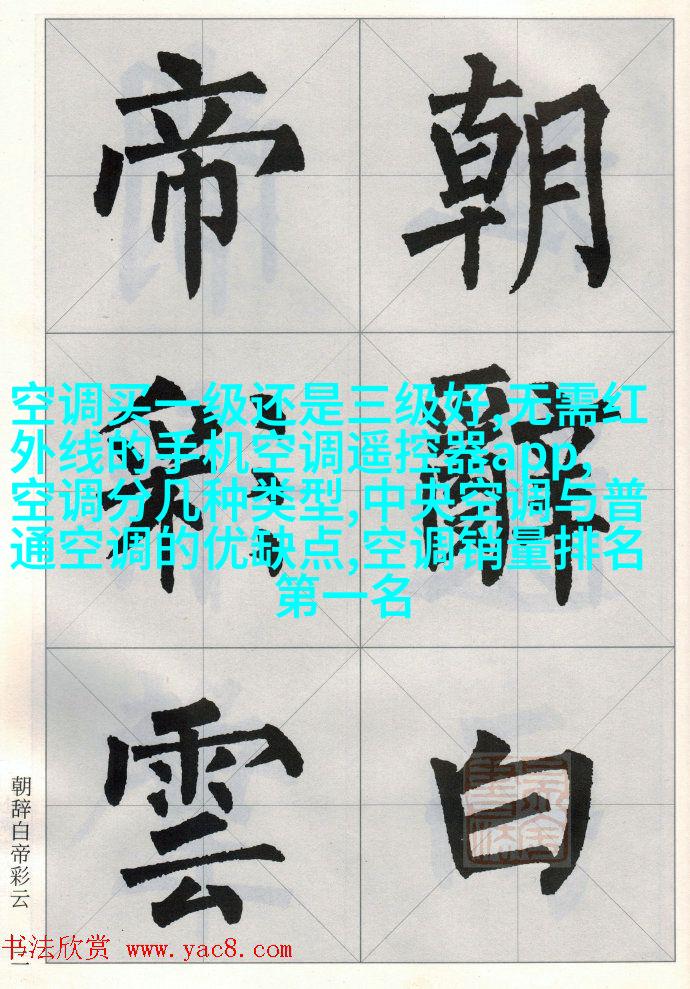 朝辭白
帝彩雲
空调买一级还是三级好,无需红
外线的手机空调遥控器app,
空调分几种类型,中央空调与普
通空调的优缺点,空调销量排名
第一名
朝辞白帝彩云
书法欣赏 www.yac8.com